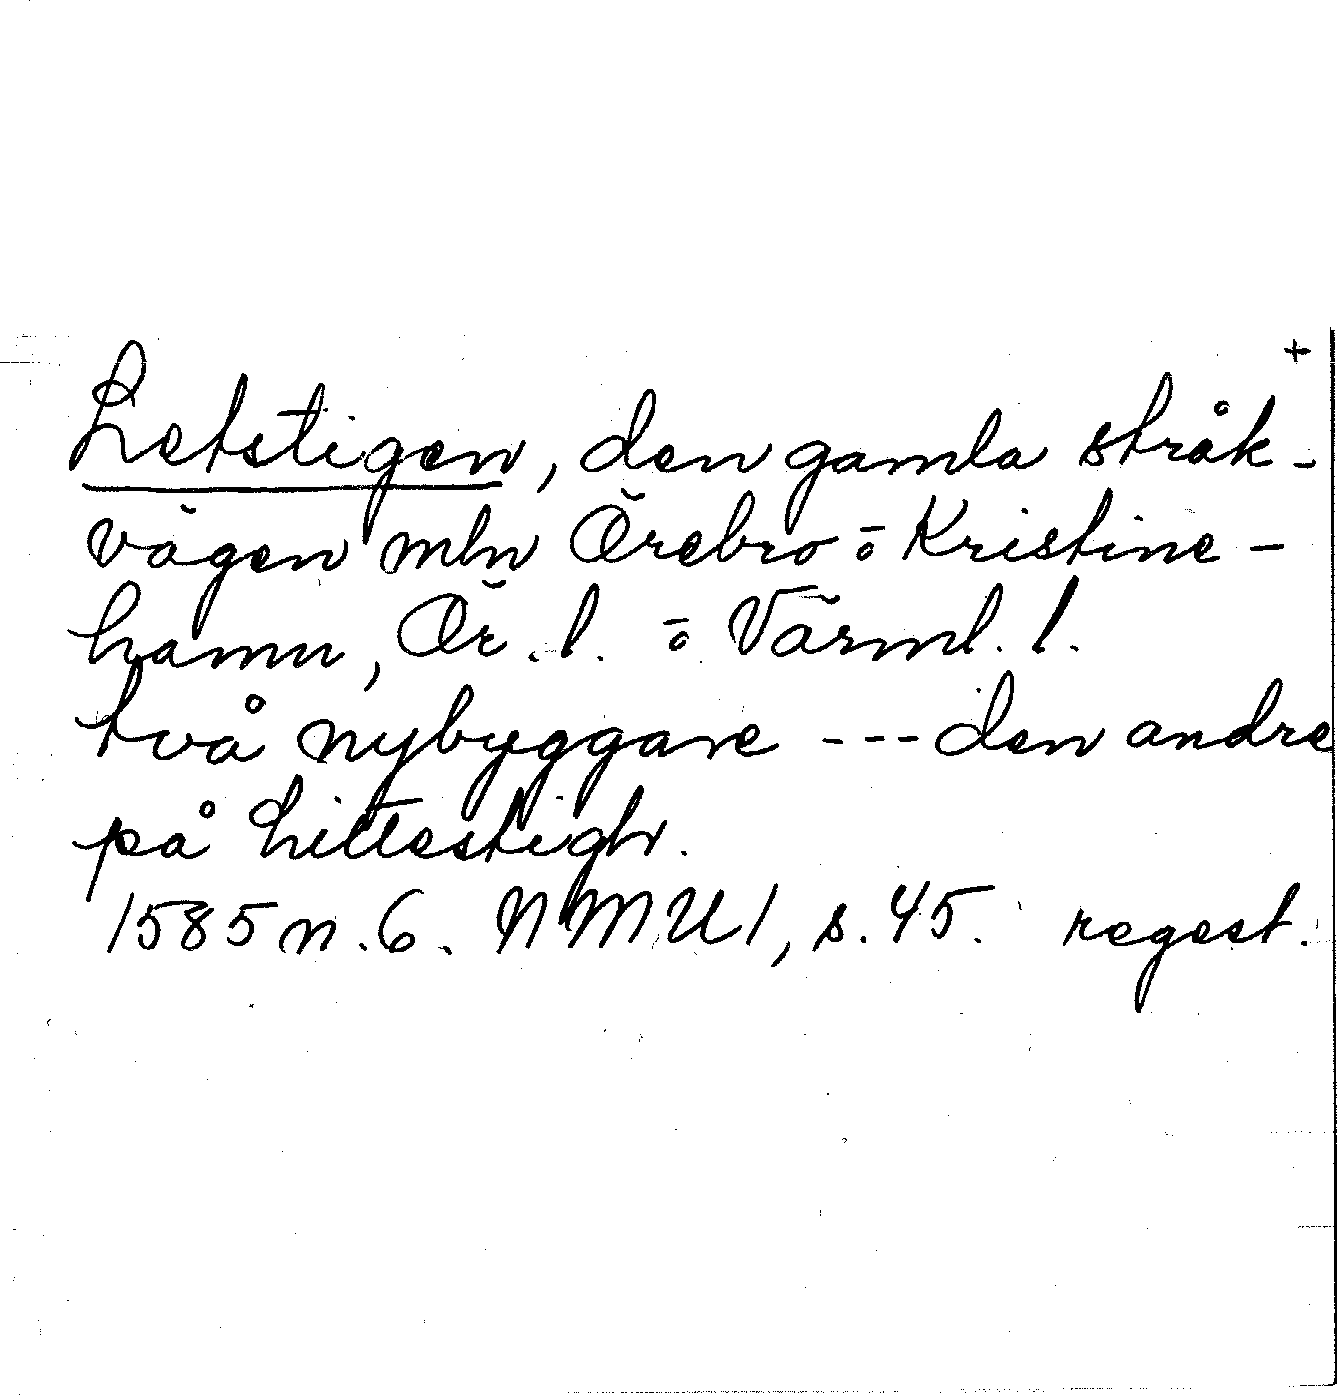 +
Letstigen, den gamla stråk-
vägen mln Örebro o Kristine-
hamn, Ör. l. o Värml. l.
två nybyggare --- den andre
på Littestigh.
1585 n. 6. NMU 1, s. 45. regest.